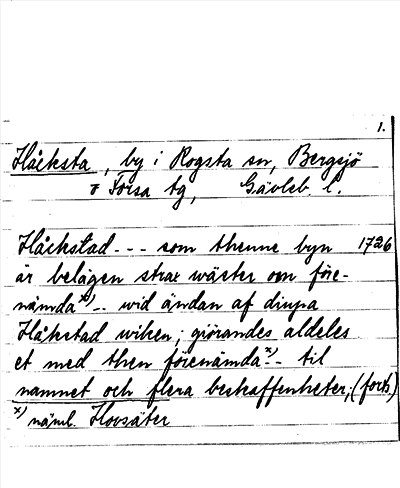 1.
Håcksta, by i Rogsta sn, Bergsjö
o Forsa tg, Gävleb. l.
Håckstad - - - som thenne byn 1726
är belägen strax wäster om före-
nämda x) - - wid ändan af diupa
Håkstad wiken, giörandes aldeles
et med then förenämda x) - - til
namnet och flera beskaffenheter, (forts)
x) näml. Hovsäter